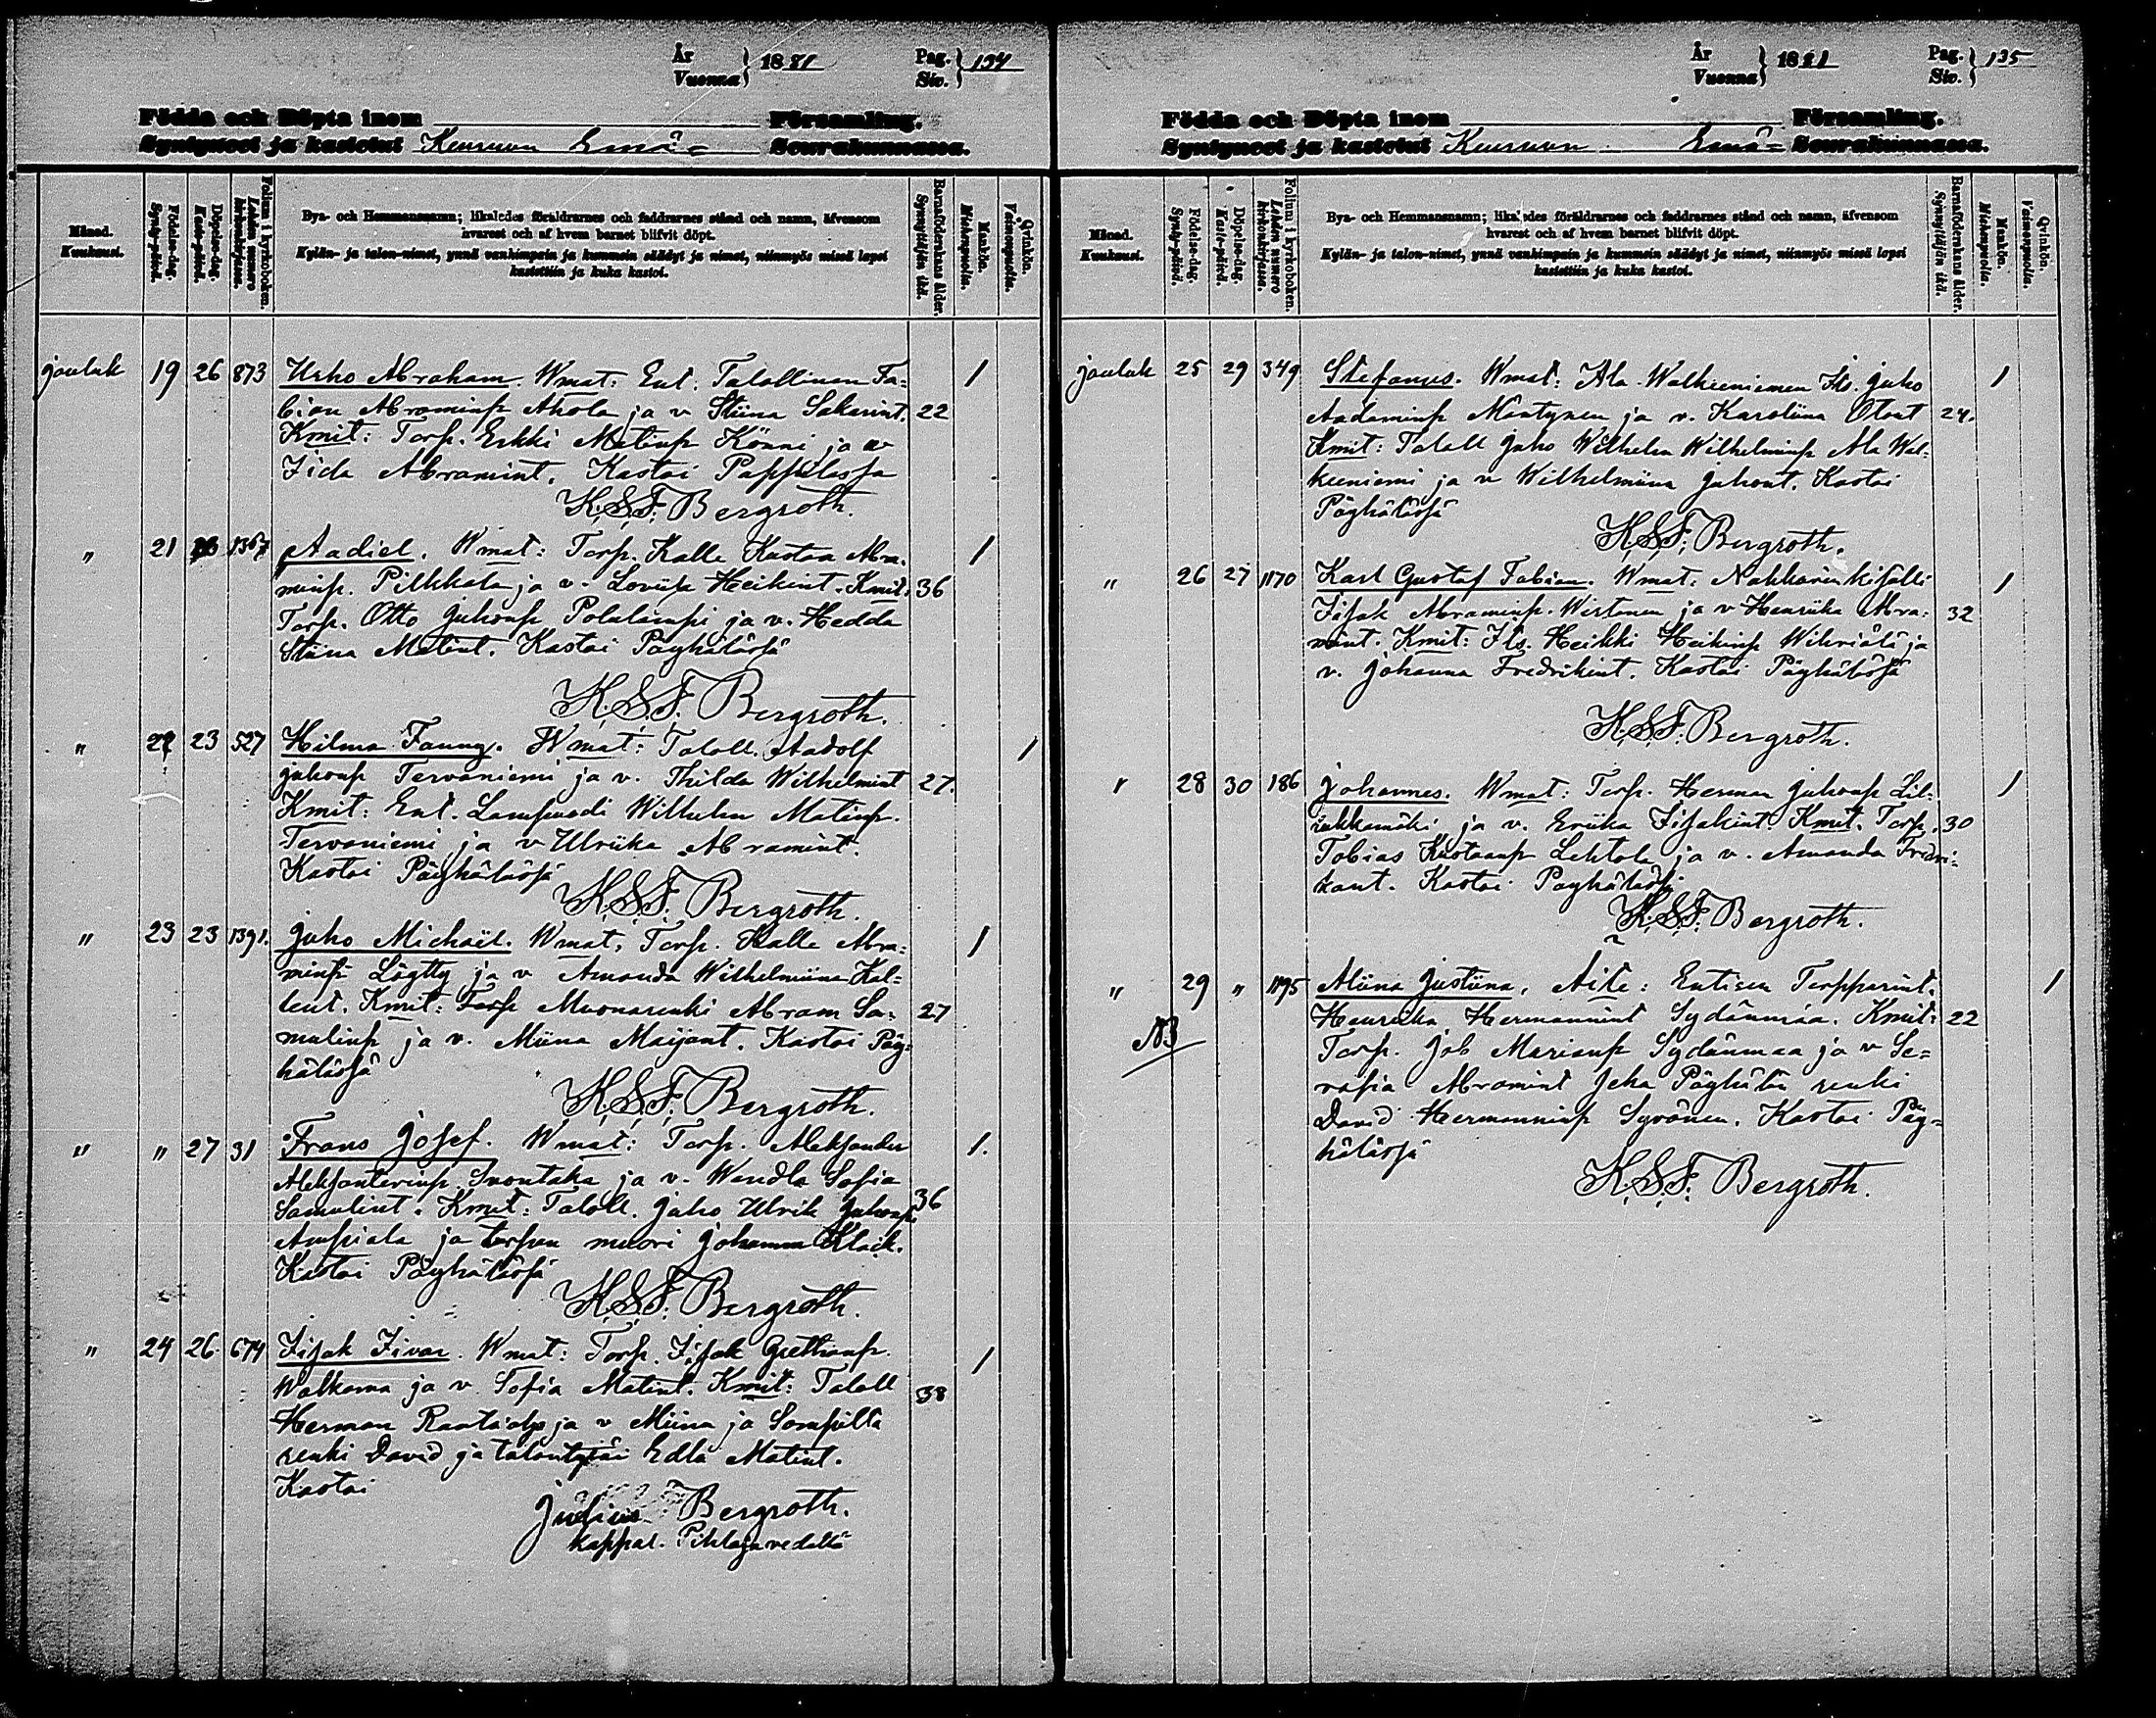 År
Vuonna } 1881 Pag.
Siv. } 134
Födda och Döpta inom Församling.
Syntyneet ja kastetut Keuruun Emä= Seurakunnassa.
Månad.
Kuukausi.
Födelse-dag.
Synty-päivä.
Döpelse-dag.
Kaste-päivä.
Folium i kyrkoboken.
Lehden numero kirkonkirjassa.
Bya- och Hemmansnamn; likaledes föräldrarnes och faddrarnes stånd och namn, äfvensom
hvarest och af hvem barnet blifvit döpt.
Kylän- ja talon-nimet, ynnä vanhimpain ja kummein säädyt ja nimet, niinmyös missä lapsi
kastettiin ja kuka kastoi.
Barnaföderskans ålder.
Synnyttäjän ikä.
Mankön.
Miehenpuolia.
Qvinkön.
Vaimonpuolia.
jouluk 19 26 873 Urho Abraham. Wmat: Ent. Talollinen Fa= 1
bian Abraminp Ahola ja v Stiina Sakarint. 22
Kmit: Torp. Erkki Matinp Könni ja v
Iida Abramint. Kastoi Pappilassa
K.S.F. Bergroth.
" 21 1367 Aadiel. Wmat: Torp. Kalle Kustaa Abra- 1
minp. Pilkkala ja v. Loviisa Heikint. Kmit. 36
Torp. Otto Juhonp Polulampi ja v. Hedda
Stiina Matint. Kastoi Pöyhölässä
K.S.F. Bergroth.
" 22 23 527 Hilma Fanny. Wmat: Taloll. Aadolf 1
Juhonp Tervaniemi ja v. Thilda Wilhelmint 27.
Kmit: Ent. Lampuodi Wilhelm Matinp.
Tervaniemi ja v Ulriika Abramint.
Kastoi Pöyhölässä
K.S.F. Bergroth.
" 23 23 1391. Juho Michaël. Wmat: Torp. Kalle Abra= 1
minp Löytty ja v Amanda Wilhelmiina Kal=
lent. Kmit: Torp Muonarenki Abram Sa= 27
mulinp ja v. Miina Maijant. Kastoi Pöy=
hölässä
K.S.F. Bergroth.
" " 27 31 Frans Josef. Wmat: Torp. Aleksander 1.
Aleksanterinp. Suontaka ja v. Wendla Sofia
Samulint. Kmit: Taloll. Juho Ulrik Juhonp 36
Ampiala ja torpan muori Johanna Klaik.
Kastoi Pöyhölässä
K.S.F. Bergroth.
" 24 26. 674 Iisak Iivar. Wmat: Torp. Iisak 1
Walkama ja v. Sofia Matint. Kmit: Taloll 38
Herman ja v Miina ja
renki David ja Edla Matint.
Kastoi
Julius Bergroth.
Kappal. Pihlajavedellä
År
Vuonna } 1881 Pag.
Siv. } 135
Födda och Döpta inom Församling.
Syntyneet ja kastetut Keuruun Emä= Seurakunnassa.
Månad.
Kuukausi.
Födelse-dag.
Synty-päivä.
Döpelse-dag.
Kaste-päivä.
Folium i kyrkoboken.
Lehden numero kirkonkirjassa.
Bya- och Hemmansnamn; likaledes föräldrarnes och faddrarnes stånd och namn, äfvensom
hvarest och af hvem barnet blifvit döpt.
Kylän- ja talon-nimet, ynnä vanhimpain ja kummein säädyt ja nimet, niinmyös missä lapsi
kastettiin ja kuka kastoi.
Barnaföderskans ålder.
Synnyttäjän ikä.
Mankön.
Miehenpuolia.
Qvinkön.
Vaimonpuolia.
jouluk 25 29 349 Stefanus. Wmat: Ala-Walkeeniemen Its. Juho 1
Aadaminp Mäntynen ja v. Karoliina Otont 24.
Kmit: Taloll Juho Wilhelm Wilhelminp Ala Wal-
keeniemi ja v Wilhelmiina Juhont. Kastoi
Pöyhölässä
K.S.F. Bergroth.
" 26 27 1170 Karl Gustaf Fabian. Wmat: Nahkurin kisälli 1
Iisak Abraminp. Wirtanen ja v Henriika Abra= 32
mint. Kmit: Its. Heikki Heikinp Wihriälä ja
v. Johanna Fredrikint. Kastoi Pöyhölässä
K.S.F. Bergroth.
" 28 30 186 Johannes. Wmat: Torp. Herman Juhonp 1
ja v. Eriika Iisakint. Kmit. Torp. 30
Tobias Kustaanp Lehtola ja v. Amanda Fredri=
kant. Kastoi Pöyhölässä
K.S.F. Bergroth.
" 29 " 1195 Aliina Justiina. Äite: Entisen Torpparint. 1
Henriika Hermannint Sydänmaa. Kmit: 22
NB Torp. Job Marianp Sydänmaa ja v Se=
rafia Abramint Jeka Pöyhölän renki
David Hermanninp Syvänen. Kastoi Pöy=
hölässä
K.S.F. Bergroth.